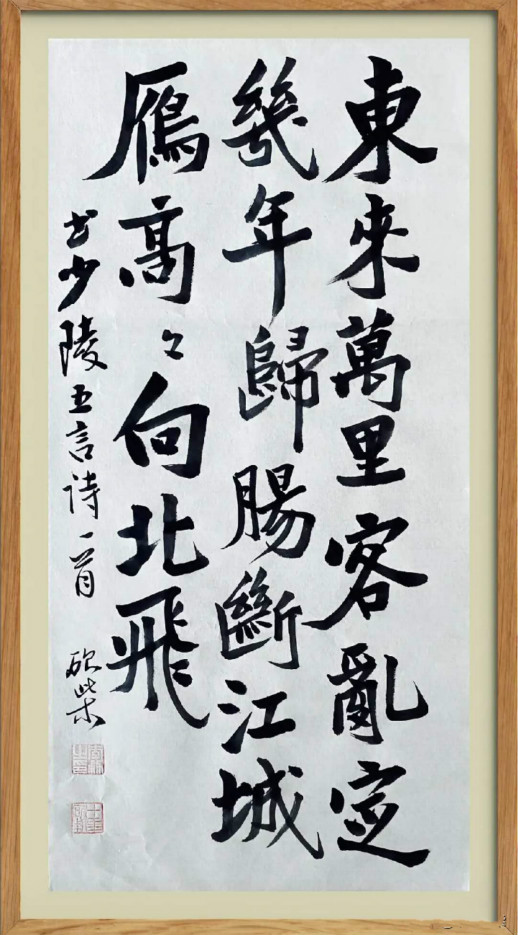 東來萬里客亂定
幾年歸腸斷江城
雁高々向北飛
书少陵五言诗一首 砍柴